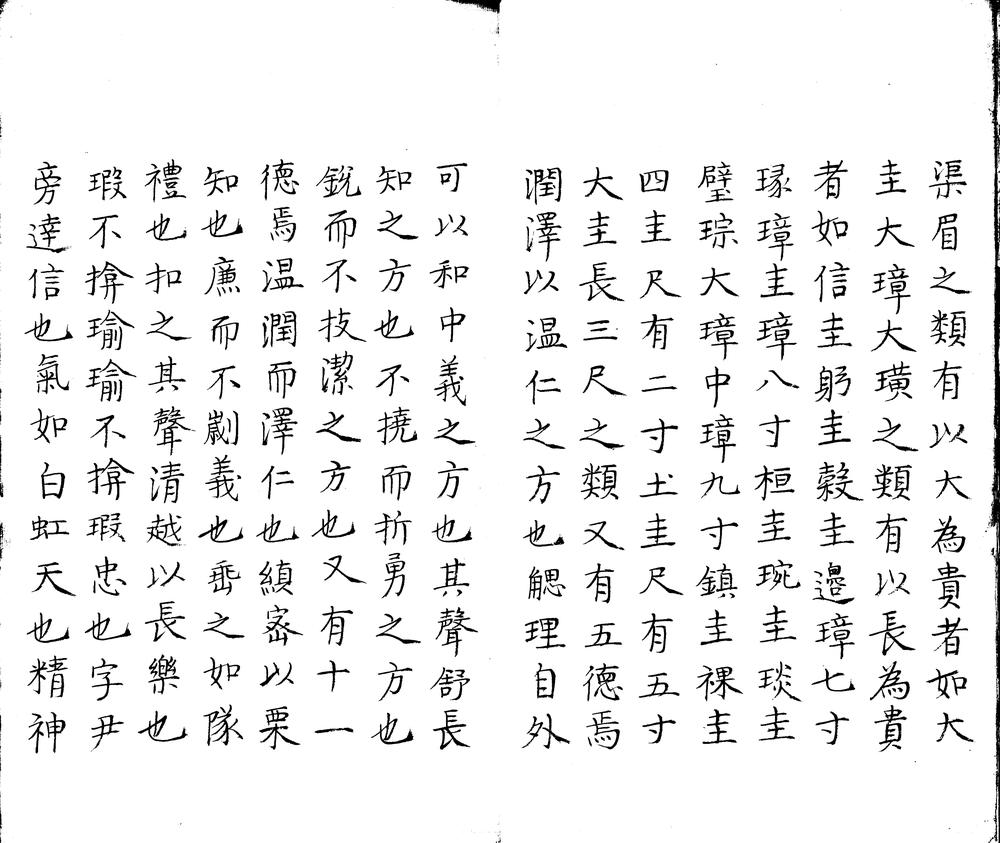 渠眉之類有以大為貴者如大
圭大璋大璜之類有以長為貴
者如信圭躬圭穀圭邊璋七寸
瑑璋圭璋八寸桓圭琬圭琰圭
璧琮大璋中璋九寸鎮圭祼圭
四圭尺有二寸土圭尺有五寸
大圭長三尺之類又有五德焉
潤澤以温仁之方也䚡理自外
可以和中義之方也其聲舒長
知之方也不撓而折勇之方也
銳而不技潔之方也又有十一
德焉温潤而澤仁也縝宻以栗
知也廉而不劌義也垂之如隊
禮也扣之其聲清越以長樂也
瑕不揜瑜瑜不揜瑕忠也孚尹
旁達信也氣如白虹天也精神